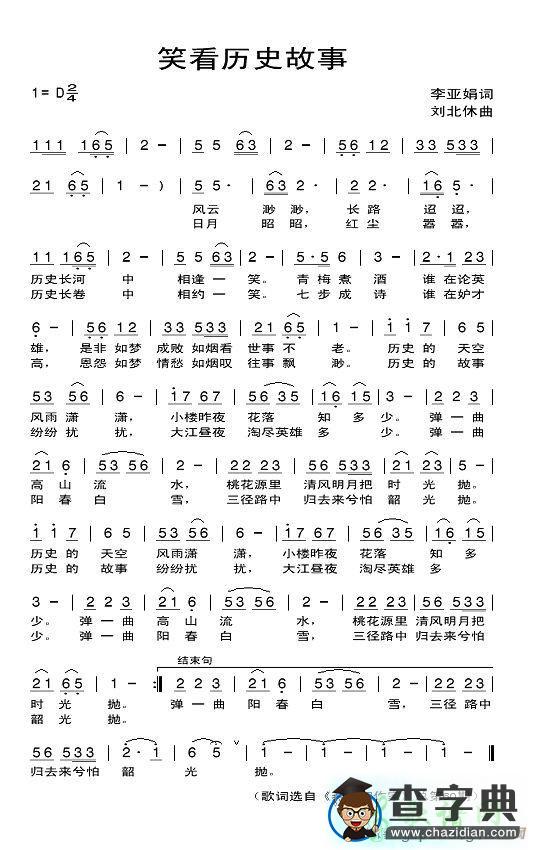 笑看历史故事
1=D 2/4
李亚娟词
刘北休曲
111 165 | 2 - | 5 5 63 | 2 - | 56 12 | 33 533 |
21 65 | 1 - ) | 5 5· | 63 2 | 2 2· | 16 5· |
风云 渺渺, 长路 迢迢,
日月 昭昭, 红尘 嚣嚣,
11 165 | 2 - | 55 63 | 2 - | 5·5 53 | 2·1 23 |
历史长河 中 相逢一笑。 青梅煮酒 谁在论英
历史长卷 中 相约一笑。 七步成诗 谁在妒才
6 - | 56 12 | 33 533 | 21 65 | 1 - | 1 1 7 | 67 65 |
雄, 是非如梦 成败如烟看 世事不老。 历史的天空
高, 恩怨如梦 情愁如烟叹 往事飘渺。 历史的故事
53 56 | 6 - | 17 67 | 56 35 | 16 15 | 3 - | 2 2 3 |
风雨潇潇, 小楼昨夜 花落知多少。 弹一曲
纷纷扰扰, 大江昼夜 淘尽英雄多少。 弹一曲
21 6 | 53 56 | 2 - | 22 23 | 56 533 | 21 23 | 5 - |
高山流水, 桃花源里 清风明月把 时光抛。
阳春白雪, 三径路中 归去来兮怕 韶光抛。
1 1 7 | 67 65 | 53 56 | 6 - | 17 67 | 56 35 | 16 15 |
历史的天空 风雨潇潇, 小楼昨夜 花落知多
历史的故事 纷纷扰扰, 大江昼夜 淘尽英雄多
3 - | 2 2 3 | 21 6 | 53 56 | 2 - | 22 23 | 56 533 |
少。 弹一曲 高山流水, 桃花源里 清风明月把
少。 弹一曲 阳春白雪, 三径路中 归去来兮怕
结束句
21 65 | 1 - :| 2 2 3 | 21 6 | 53 56 | 2 - | 22 23 |
时光抛。 弹一曲 阳春白雪, 三径路中
韶光抛。
56 533 | 2·1 | 6 5 | 1 - | 1 - | 1 - | 1 - |
归去来兮怕 韶光抛。
(歌词选自《
查字典
www.chazidian.com